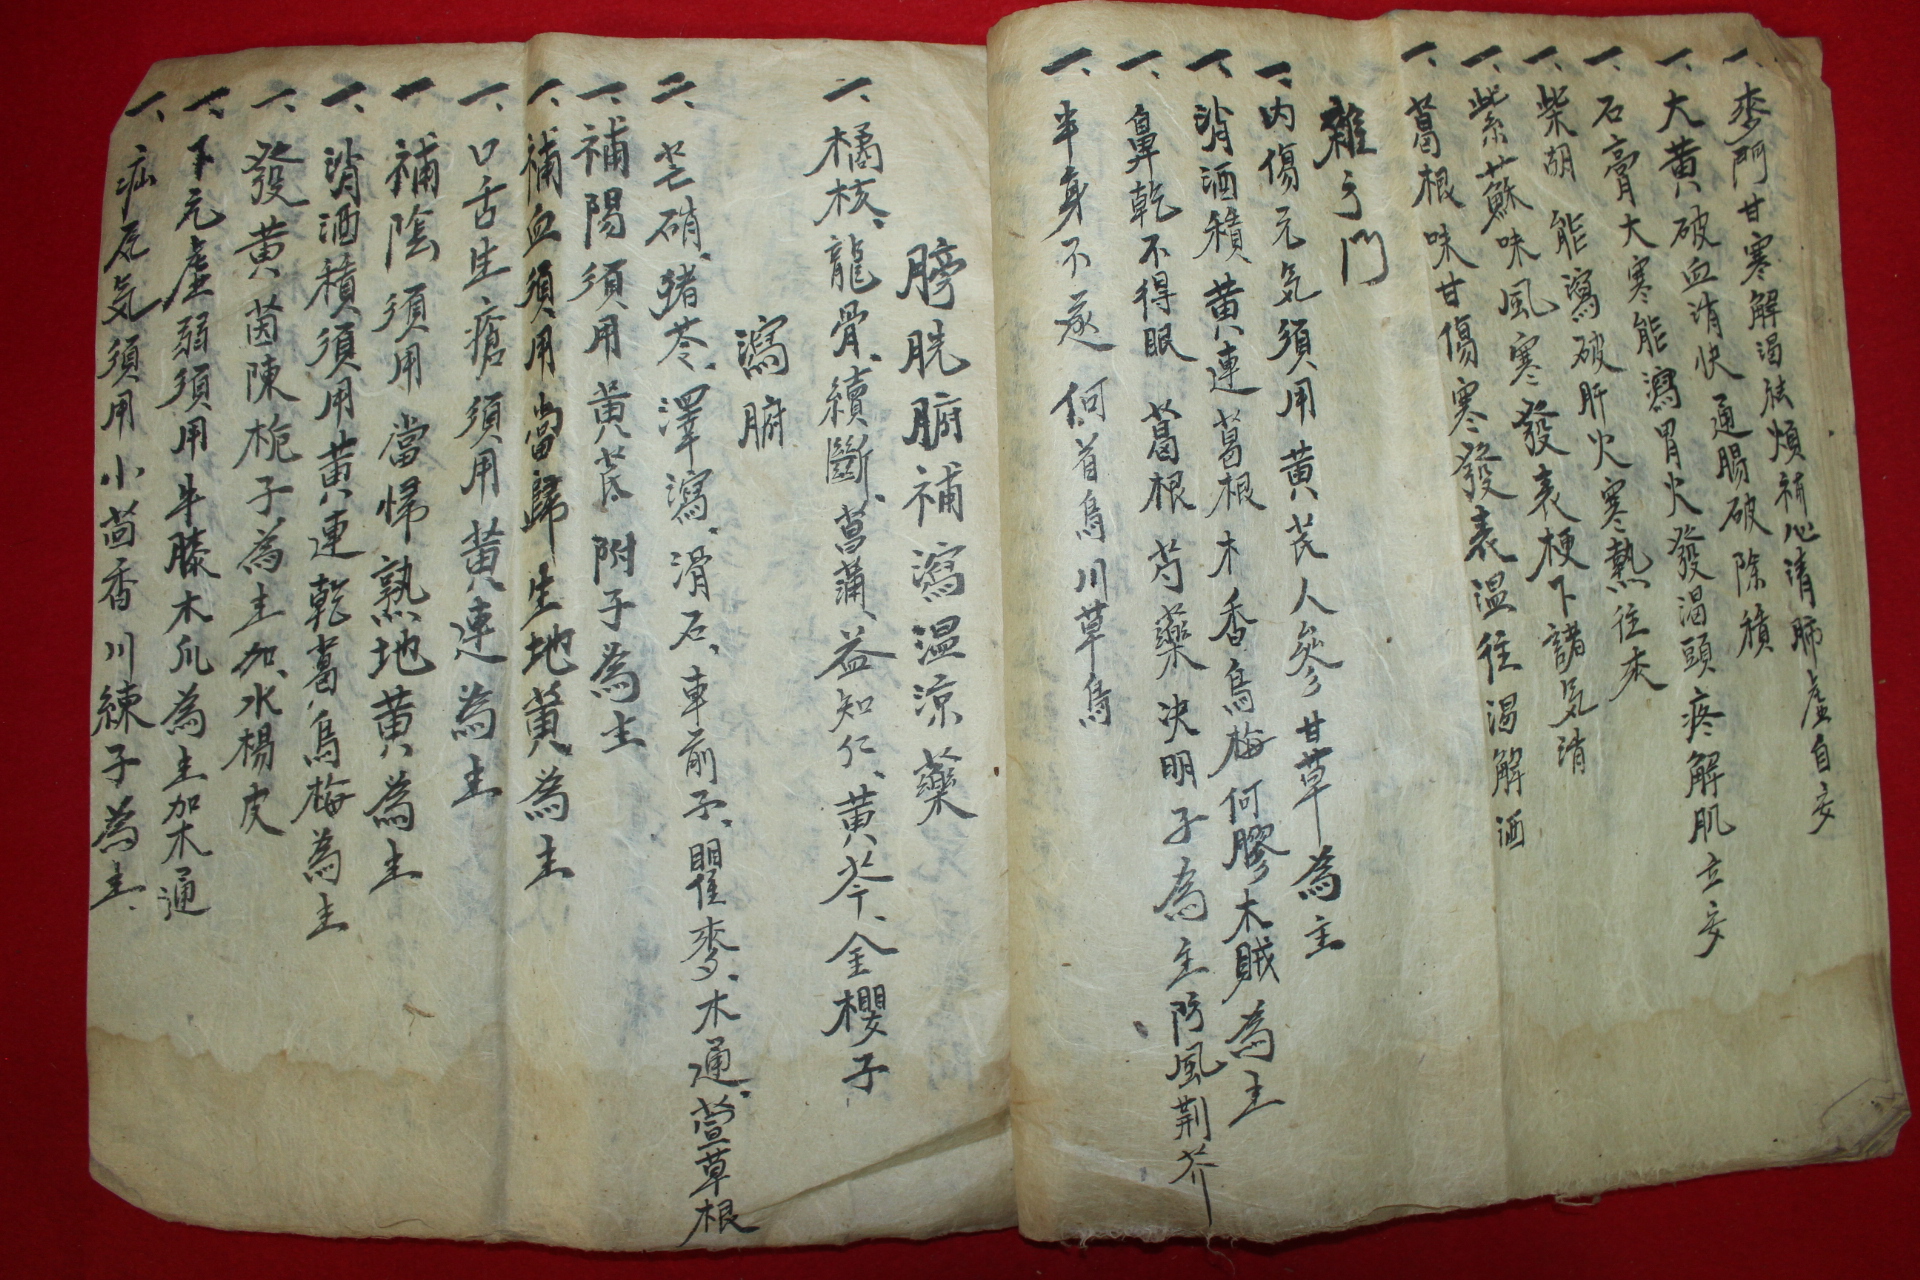 一、麥門甘寒解渴祛煩補心清肺虛自安
一、大黄破血消快通腸破除積
一、石膏大寒能瀉胃火發渴頭疼解肌立安
一、柴胡能瀉破肝火寒熱往來
一、紫蘇味風寒發表梗下諸気清
一、葛根味甘傷寒發表温往渴解酒
雜方門
一、内傷元気須用黄芪人參甘草為主
一、消酒積黄連葛根木香烏梅何膠木賊為主
一、鼻乾不得眠葛根芍藥决明子為主防風荆芥
一、半身不遂何首烏川草烏
膀胱腑補瀉温涼藥
一、橘核、龍骨、續斷、菖蒲、益知仁、黄芩、金櫻子
瀉腑
二、芒硝、猪苓、澤瀉、滑石、車前子、瞿麥、木通、萱草根
一、補陽須用黄芪附子為主
一、補血須用當歸生地黄為主
一、口舌生瘡須用黄連為主
一、補陰須用當帰熟地黄為主
一、消酒積須用黄連乾葛烏梅為主
一、發黄茵陳梔子為主加水楊皮
一、下元虛弱須用牛膝木爪為主加木通
一、疝気須用小茴香川練子為主